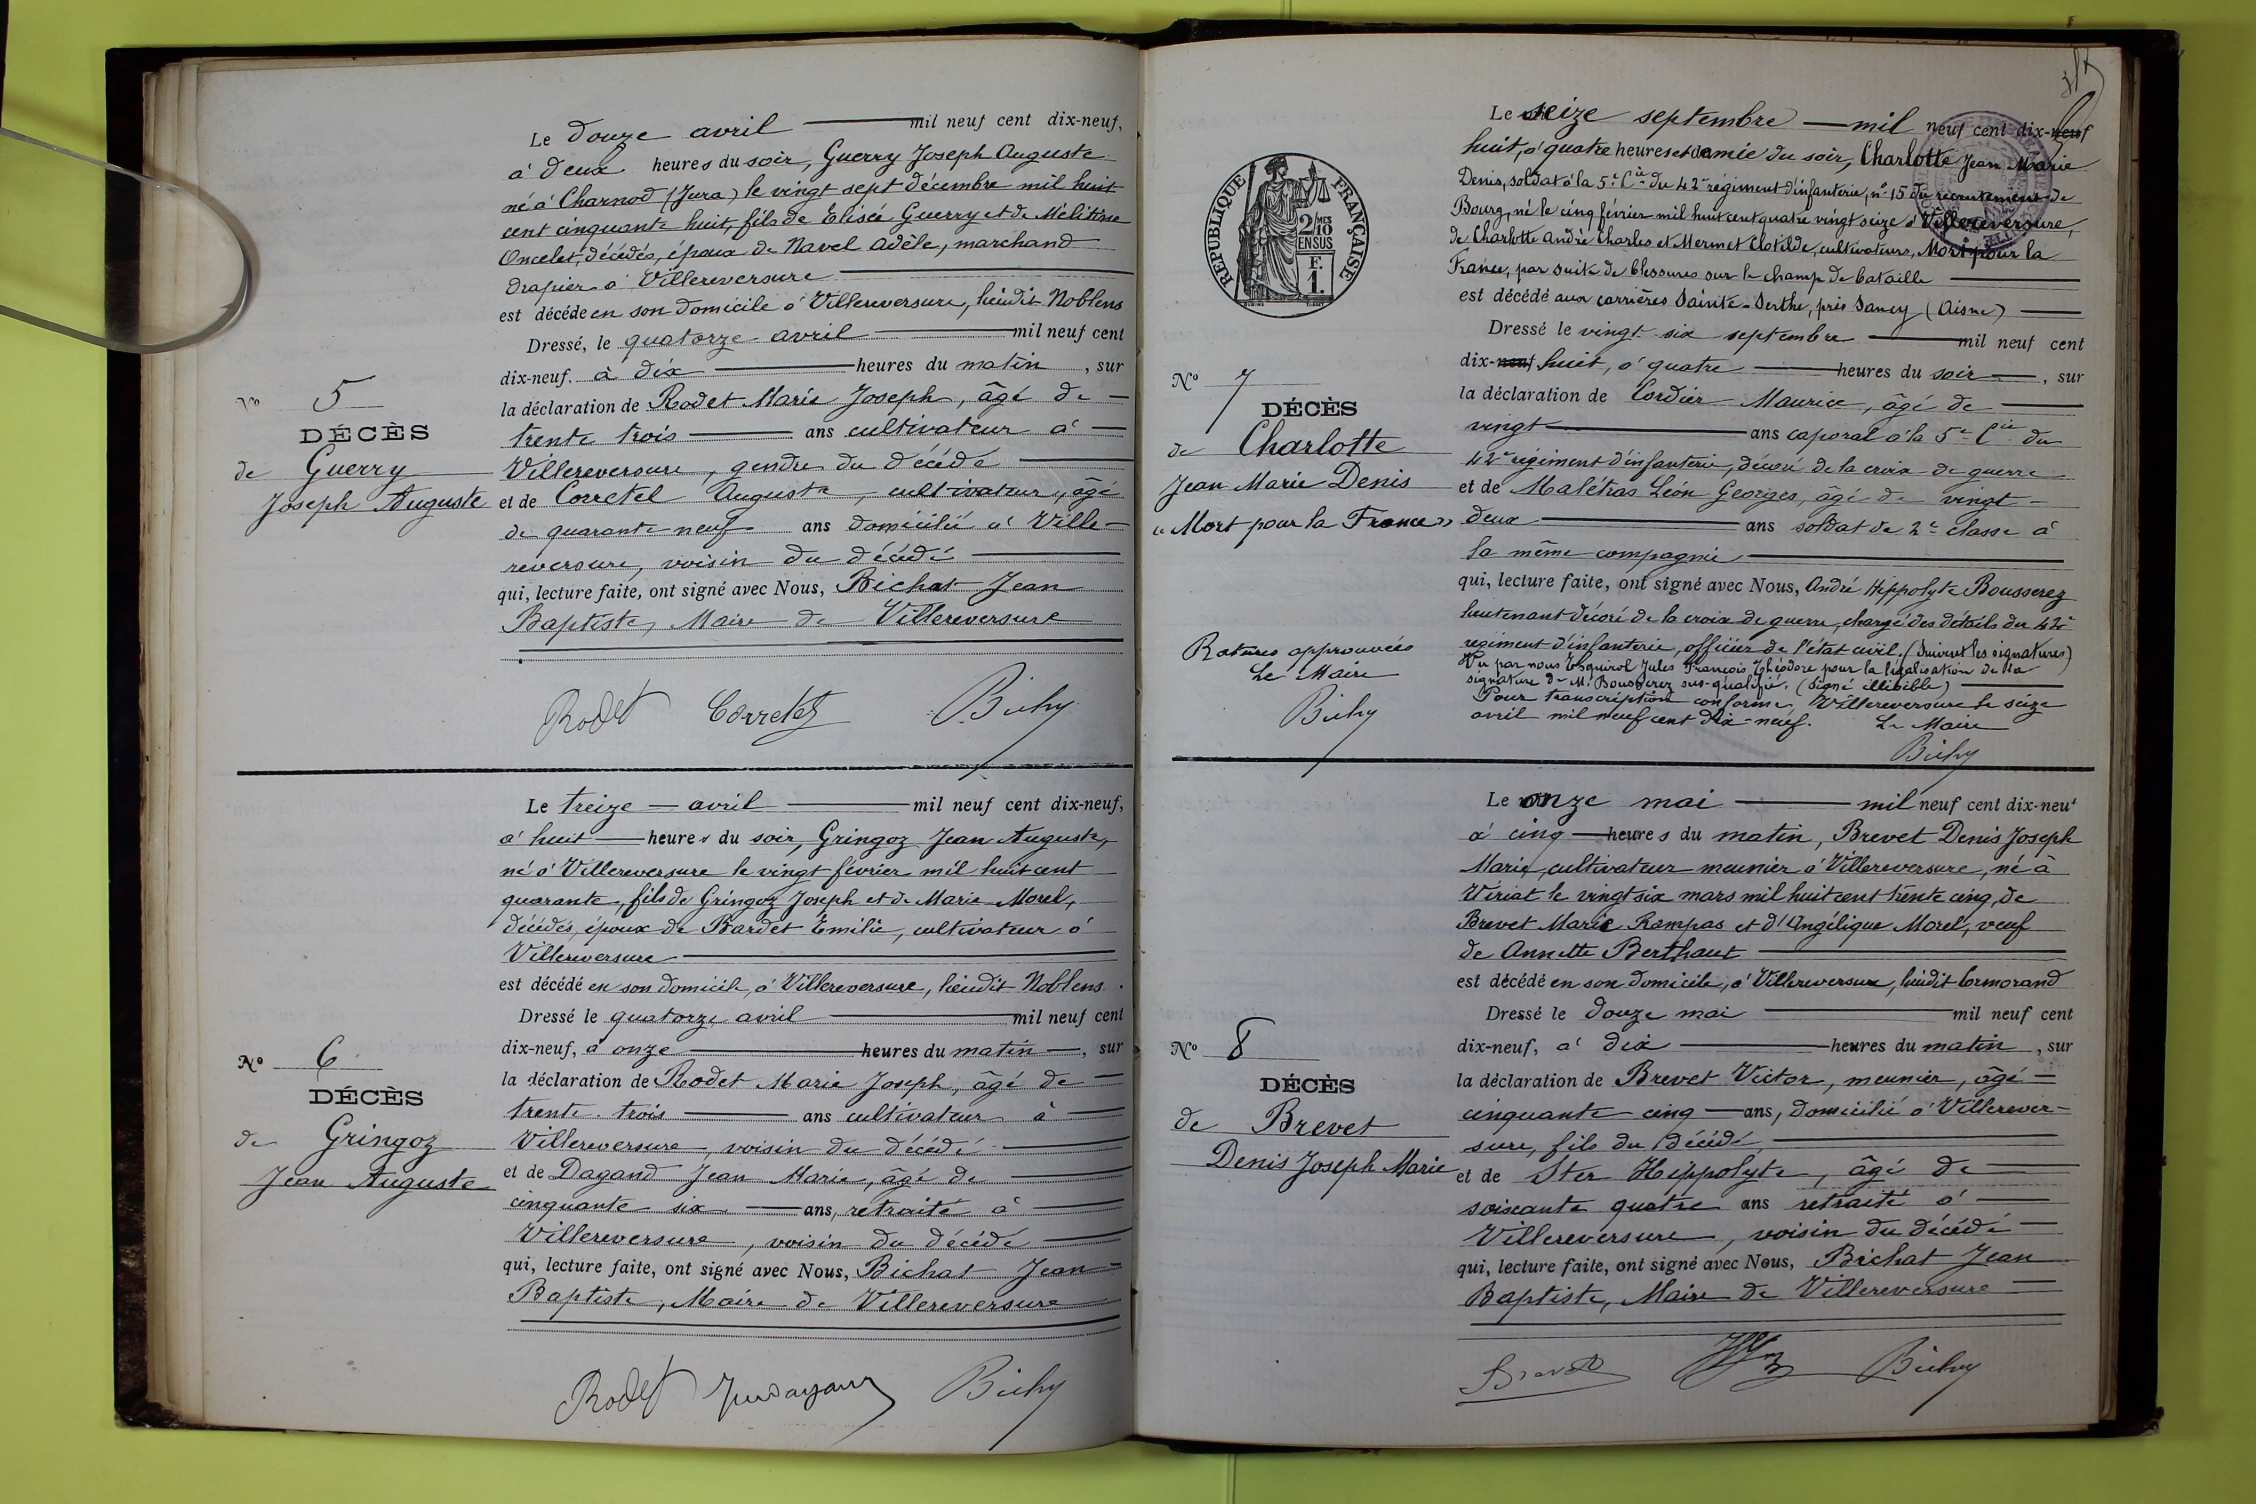 Le douze avril mil neuf cent dix-neuf,
à deux heures du soir, Guerry Joseph Auguste
né à Charnod (Jura) le vingt sept décembre mil huit
cent cinquante huit, fils de Elisée Guerry et de Mélitine
Oncelet, décédés, époux de Navel Adèle, marchand
drapier à Villereversure
est décédé en son domicile à Villereversure, lieudit Noblens
Dressé, le quatorze avril mil neuf cent
dix-neuf. à dix heures du matin, sur
la déclaration de Rodet Marie Joseph, âgé de
trente trois ans cultivateur à
Villereversure, gendre du décédé
et de Corretel Auguste, cultivateur, âgé
de quarante neuf ans domicilié à Ville-
reversure, voisin du décédé
qui, lecture faite, ont signé avec Nous, Bichat Jean
Baptiste, Maire de Villereversure
No 5
DÉCÈS
de Guerry
Joseph Auguste
Rodet Corretel Bichat
Le treize avril mil neuf cent dix-neuf,
à huit heures du soir, Gringoz Jean Auguste,
né à Villereversure le vingt février mil huit cent
quarante, fils de Gringoz Joseph et de Marie Morel,
décédés, époux de Bardet Emilie, cultivateur à
Villereversure
est décédé en son domicile, à Villereversure, lieudit Noblens.
Dressé le quatorze avril mil neuf cent
dix-neuf, à onze heures du matin, sur
la déclaration de Rodet Marie Joseph, âgé de
trente trois ans cultivateur à
Villereversure, voisin du décédé
et de Dagand Jean Marie, âgé de
cinquante six ans, retraité à
Villereversure, voisin du décédé
qui, lecture faite, ont signé avec Nous, Bichat Jean
Baptiste, Maire de Villereversure
No 6
DÉCÈS
de Gringoz
Jean Auguste
Rodet Bichat
RÉPUBLIQUE FRANÇAISE
2/10 MES
EN SUS
F.
1.
Le seize septembre mil neuf cent dix-neuf
huit, à quatre heures et demie du soir, Charlotte Jean Marie
Denis, soldat à la 5e Cie du 42e régiment d'infanterie, no 15 du recrutement de
Bourg, né le cinq février mil huit cent quatre vingt seize à Villereversure,
de Charlotte André Charles et Mermet Clotilde, cultivateurs, Mort pour la
France, par suite de blessures sur le champ de bataille
est décédé aux carrières Sainte-Berthe, près Sancy (Aisne)
Dressé le vingt six septembre mil neuf cent
dix-neuf huit, à quatre heures du soir, sur
la déclaration de Cordier Maurice, âgé de
vingt ans caporal à la 5e Cie du
42e régiment d'infanterie, décoré de la croix de guerre
et de Malétras Léon Georges, âgé de vingt
deux ans soldat de 2e classe à
la même compagnie
qui, lecture faite, ont signé avec Nous, André Hippolyte Bousserez
lieutenant décoré de la croix de guerre, chargé des détails du 42e
régiment d'infanterie, officier de l'état civil. (Suivent les signatures)
Vu par nous Esquirol Jules François Théodore pour la légalisation de la
signature de M. Bousserez sus-qualifié. (Signé illisible)
Pour transcription conforme, Villereversure le seize
avril mil neuf cent dix-neuf. Le Maire
Bichat
No 7
DÉCÈS
de Charlotte
Jean Marie Denis
"Mort pour la France"
Ratures approuvées
Le Maire
Bichat
Le onze mai mil neuf cent dix-neuf
à cinq heures du matin, Brevet Denis Joseph
Marie, cultivateur meunier à Villereversure, né à
Viriat le vingt six mars mil huit cent trente cinq, de
Brevet Marie Rampas et d'Angélique Morel, veuf
de Annette Berthaut
est décédé en son domicile, à Villereversure, lieudit Cormorand
Dressé le douze mai mil neuf cent
dix-neuf, à dix heures du matin, sur
la déclaration de Brevet Victor, meunier, âgé
cinquante cinq ans, domicilié à Villerever-
sure, fils du décédé
et de Ster Hippolyte, âgé de
soixante quatre ans retraité à
Villereversure, voisin du décédé
qui, lecture faite, ont signé avec Nous, Bichat Jean
Baptiste, Maire de Villereversure
No 8
DÉCÈS
de Brevet
Denis Joseph Marie
Brevet Bichat